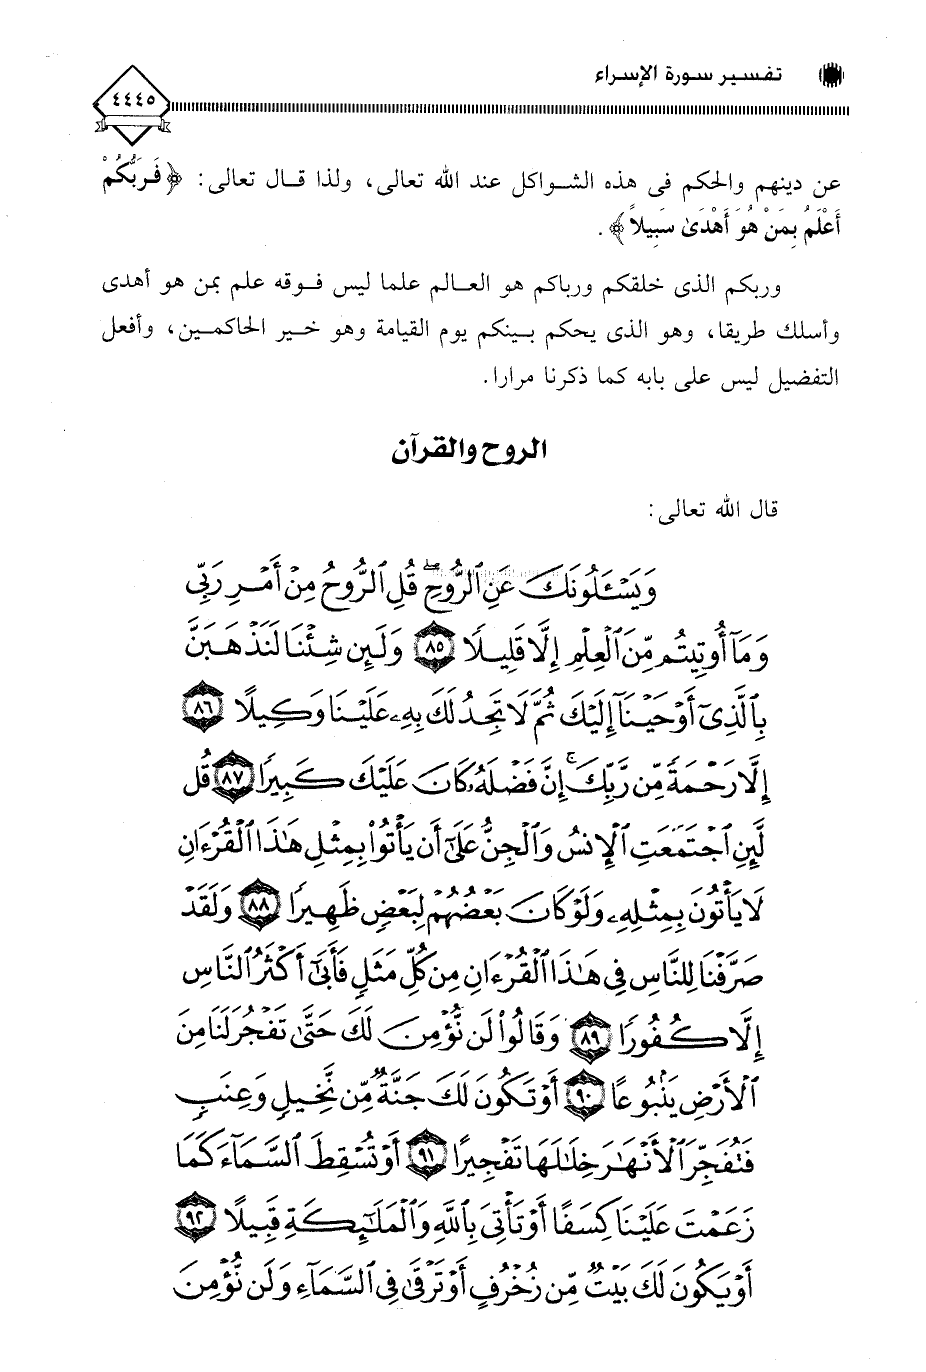 تفسير سورة الإسراء
٤٤٤٥
عن دينهم والحكم فى هذه الشواكل عند الله تعالى، ولذا قال تعالى: ﴿فَرَبُّكُمْ
أَعْلَمُ بِمَنْ هُوَ أَهْدَىٰ سَبِيلاً﴾.
وربكم الذى خلقكم ورباكم هو العالم علما ليس فوقه علم بمن هو أهدى
وأسلك طريقا، وهو الذى يحكم بينكم يوم القيامة وهو خير الحاكمين، وأفعل
التفضيل ليس على بابه كما ذكرنا مرارا.
الروح والقرآن
قال الله تعالى:
وَيَسْـَٔلُونَكَ عَنِ ٱلرُّوحِ ۖ قُلِ ٱلرُّوحُ مِنْ أَمْرِ رَبِّى
وَمَآ أُوتِيتُم مِّنَ ٱلْعِلْمِ إِلَّا قَلِيلًا ٨٥ وَلَئِن شِئْنَا لَنَذْهَبَنَّ
بِٱلَّذِىٓ أَوْحَيْنَآ إِلَيْكَ ثُمَّ لَا تَجِدُ لَكَ بِهِۦ عَلَيْنَا وَكِيلًا ٨٦
إِلَّا رَحْمَةً مِّن رَّبِّكَ ۚ إِنَّ فَضْلَهُۥ كَانَ عَلَيْكَ كَبِيرًا ٨٧ قُل
لَّئِنِ ٱجْتَمَعَتِ ٱلْإِنسُ وَٱلْجِنُّ عَلَىٰٓ أَن يَأْتُوا۟ بِمِثْلِ هَـٰذَا ٱلْقُرْءَانِ
لَا يَأْتُونَ بِمِثْلِهِۦ وَلَوْ كَانَ بَعْضُهُمْ لِبَعْضٍ ظَهِيرًا ٨٨ وَلَقَدْ
صَرَّفْنَا لِلنَّاسِ فِى هَـٰذَا ٱلْقُرْءَانِ مِن كُلِّ مَثَلٍ فَأَبَىٰٓ أَكْثَرُ ٱلنَّاسِ
إِلَّا كُفُورًا ٨٩ وَقَالُوا۟ لَن نُّؤْمِنَ لَكَ حَتَّىٰ تَفْجُرَ لَنَا مِنَ
ٱلْأَرْضِ يَنۢبُوعًا ٩٠ أَوْ تَكُونَ لَكَ جَنَّةٌ مِّن نَّخِيلٍ وَعِنَبٍ
فَتُفَجِّرَ ٱلْأَنْهَـٰرَ خِلَـٰلَهَا تَفْجِيرًا ٩١ أَوْ تُسْقِطَ ٱلسَّمَآءَ كَمَا
زَعَمْتَ عَلَيْنَا كِسَفًا أَوْ تَأْتِىَ بِٱللَّهِ وَٱلْمَلَـٰٓئِكَةِ قَبِيلًا ٩٢
أَوْ يَكُونَ لَكَ بَيْتٌ مِّن زُخْرُفٍ أَوْ تَرْقَىٰ فِى ٱلسَّمَآءِ وَلَن نُّؤْمِنَ